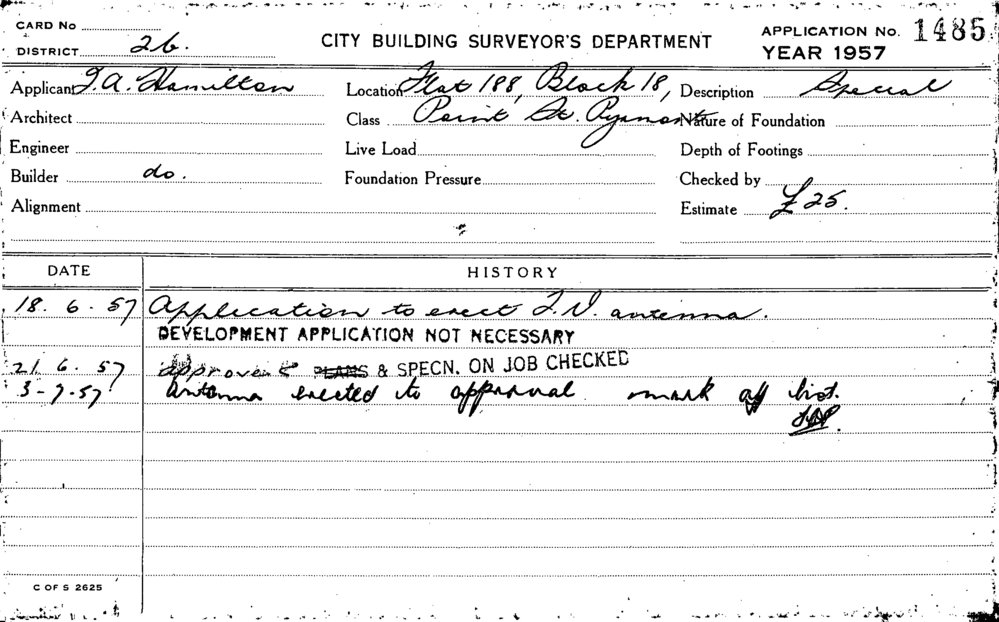 CARD No
DISTRICT 26.
CITY BUILDING SURVEYOR'S DEPARTMENT
APPLICATION No. 1485
YEAR 1957
Applicant J. A. Hamilton
Location Flat 188, Block 18,
Description Special
Architect
Class Point St. Pyrmont
Nature of Foundation
Engineer
Live Load
Depth of Footings
Builder do.
Foundation Pressure
Checked by
Alignment
Estimate £25.
DATE HISTORY
18. 6. 57 Application to erect T.V. antenna.
DEVELOPMENT APPLICATION NOT NECESSARY
21. 6. 57 approved PLANS & SPECN. ON JOB CHECKED
3-7-57 antenna erected to approval mark off list.
C OF S 2625